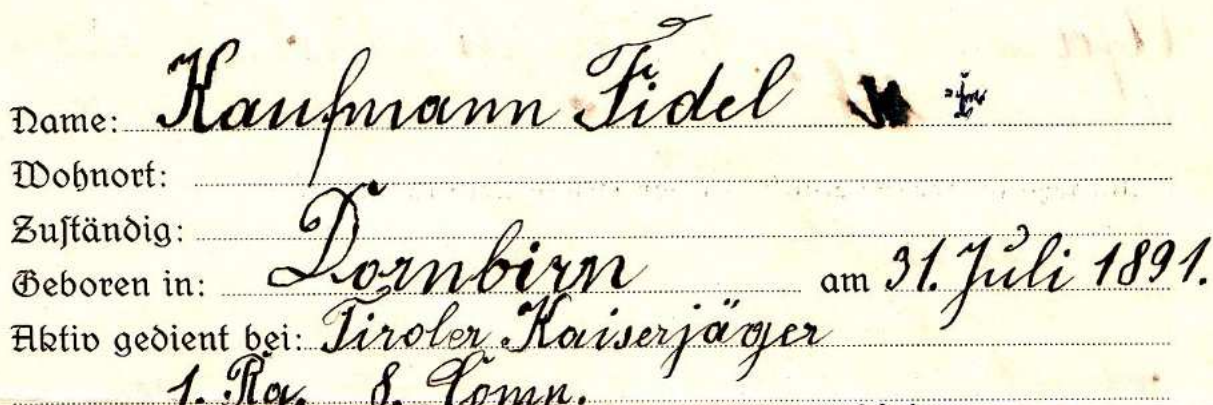 Name: Kaufmann Fidel
Wohnort:
Zuständig:
Geboren in: Dornbirn am 31. Juli 1891.
Aktiv gedient bei: Tiroler Kaiserjäger
1. Rg. 8. Comp.